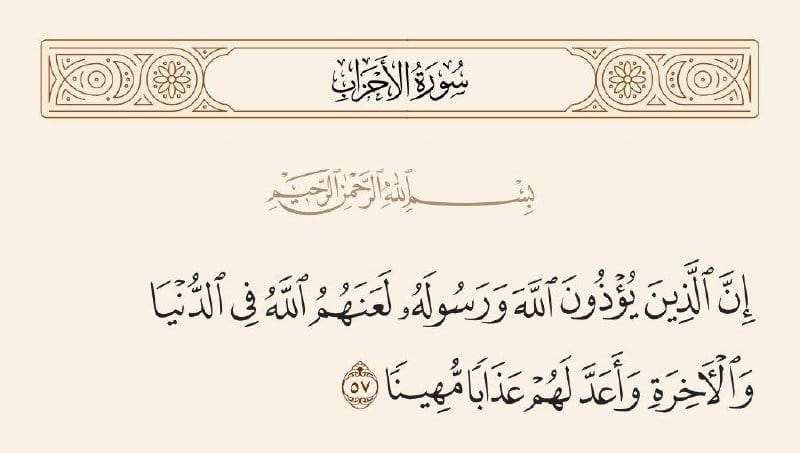 سُورَةُ الأَحْزَابِ
بِسْمِ ٱللَّهِ ٱلرَّحْمَٰنِ ٱلرَّحِيمِ
إِنَّ ٱلَّذِينَ يُؤْذُونَ ٱللَّهَ وَرَسُولَهُۥ لَعَنَهُمُ ٱللَّهُ فِى ٱلدُّنْيَا
وَٱلْأَخِرَةِ وَأَعَدَّ لَهُمْ عَذَابًا مُّهِينًا ٥٧